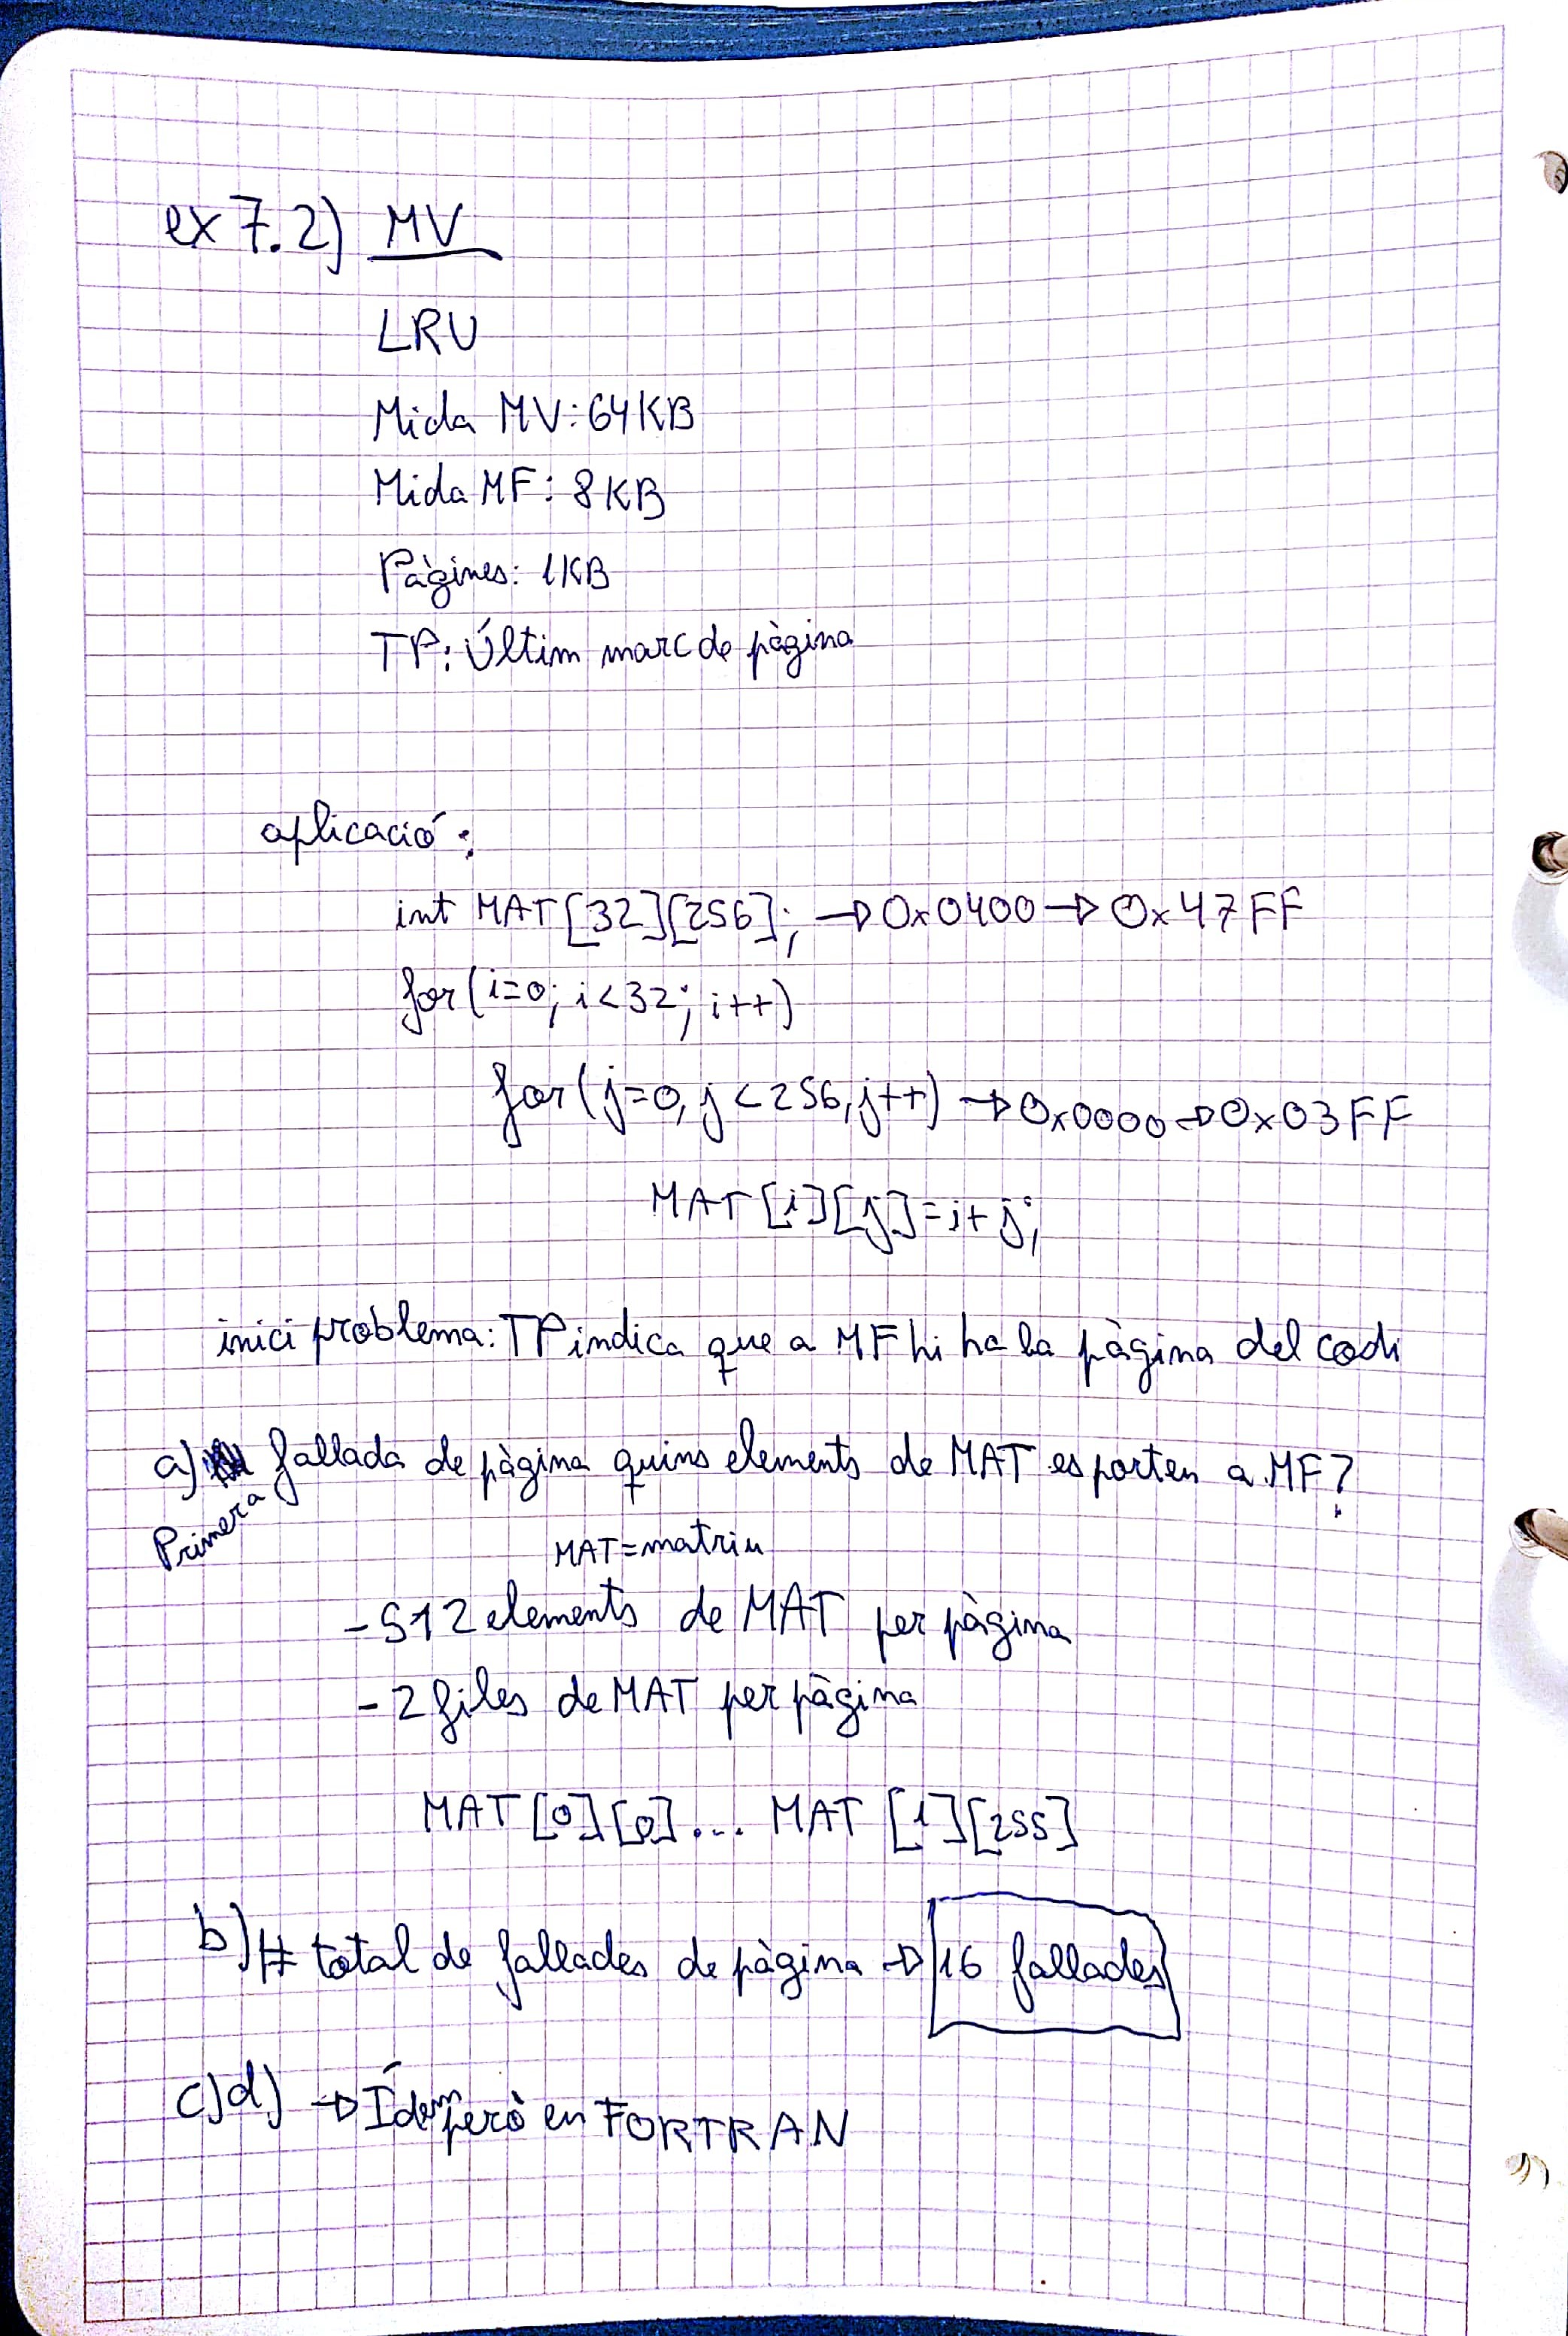 ex 7.2) MV
LRU
Mida MV: 64KB
Mida MF: 8KB
Pàgines: 1KB
TP: Últim marc de pàgina
aplicació:
int MAT[32][256]; → 0x0400 → 0x47FF
for(i=0; i<32; i++)
for(j=0, j<256, j++) → 0x0000 → 0x03FF
MAT[i][j]=i+j;
inici problema: TP indica que a MF hi ha la pàgina del codi
a) Primera fallada de pàgina quins elements de MAT es porten a MF?
MAT=matriu
- 512 elements de MAT per pàgina
- 2 files de MAT per pàgina
MAT[0][0]... MAT [1][255]
b) # total de fallades de pàgina → 16 fallades
c)d) → Ídem però en FORTRAN